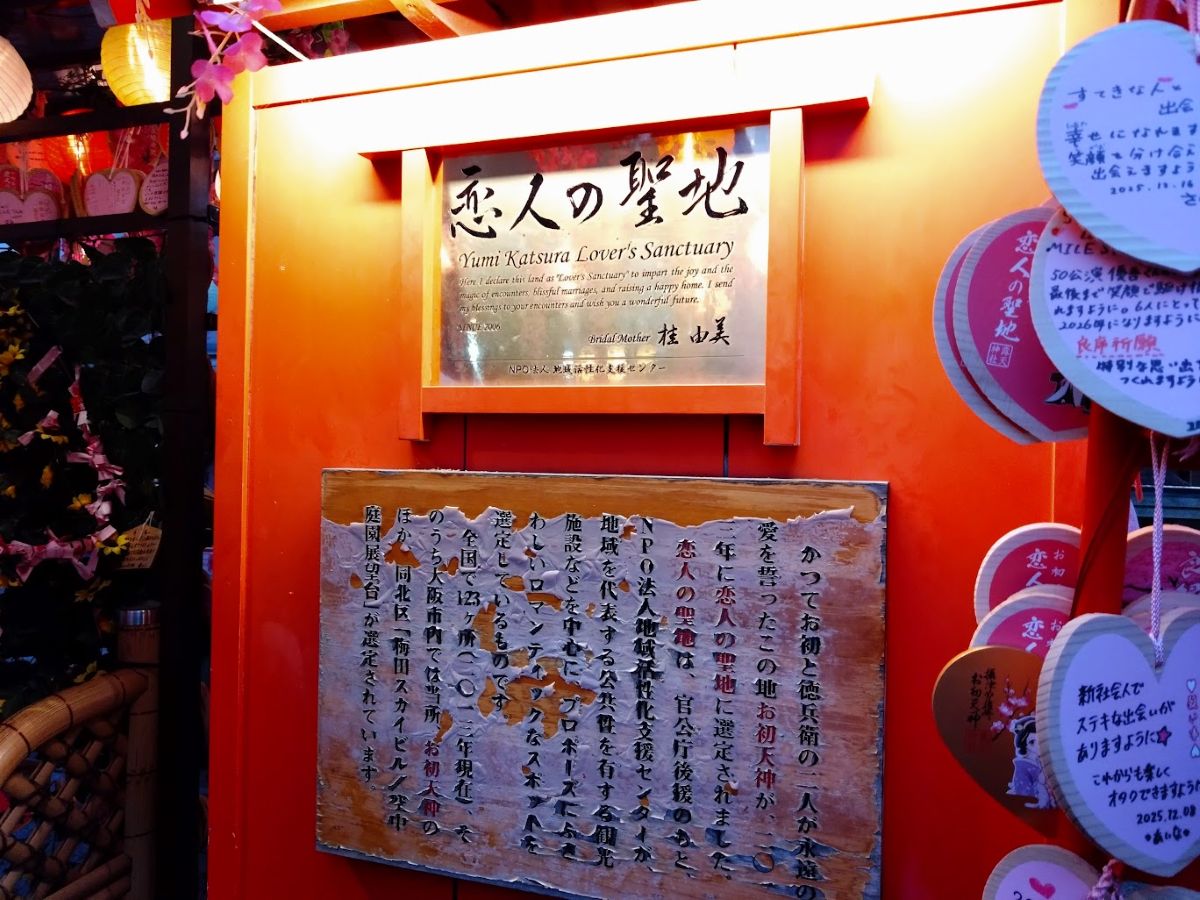 恋人の聖地
Yumi Katsura Lover's Sanctuary
Here I declare this land as "Lover's Sanctuary" to impart the joy and the
magic of encounters, blissful marriages, and raising a happy home. I send
my blessings to your encounters and wish you a wonderful future.
SINCE 2006
Bridal Mother 桂 由美
NPO法人 地域活性化支援センター
かつてお初と徳兵衛の二人が永遠の
愛を誓ったこの地お初天神が、二〇
一二年に恋人の聖地に選定されました。
恋人の聖地は、官公庁後援のもと、
NPO法人地域活性化支援センターが
地域を代表する公共性を有する観光
施設などを中心に、プロポーズにふさ
わしいロマンティックなスポットを
選定しているものです。
全国で123ヶ所(二〇一二年現在)、そ
のうち大阪市内では当所、お初天神の
ほか、同北区「梅田スカイビル/空中
庭園展望台」が選定されています。
すてきな人と
出会
幸せになれます
笑顔を分け会え
出会えますよう
2025.12.16
恋人の聖地
露天神社
MILE S
50公演
最後まで笑顔で駆け
れますように。6人にとって
2026年になりますように
良席祈願
特別な思い出
つくれますよう
お初
恋人の
お
恋人
お初天神
新社会人で
ステキな出会いが
ありますように
これからも楽しく
オタクできますように
2025.12.08